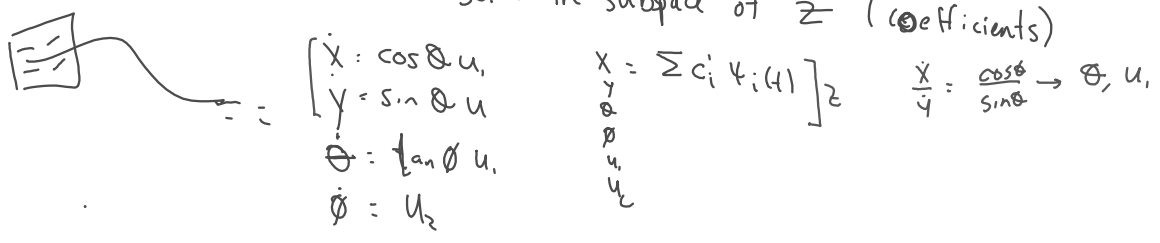 in subspace of Z (coefficients)
ẋ = cos θ u₁
ẏ = sin θ u
θ̇ = tan φ u₁
φ̇ = u₂
x = Σ cᵢ ψᵢ(t) ] z
y
θ
φ
u₁
u₂
ẋ/ẏ = cosθ/sinθ → θ, u₁